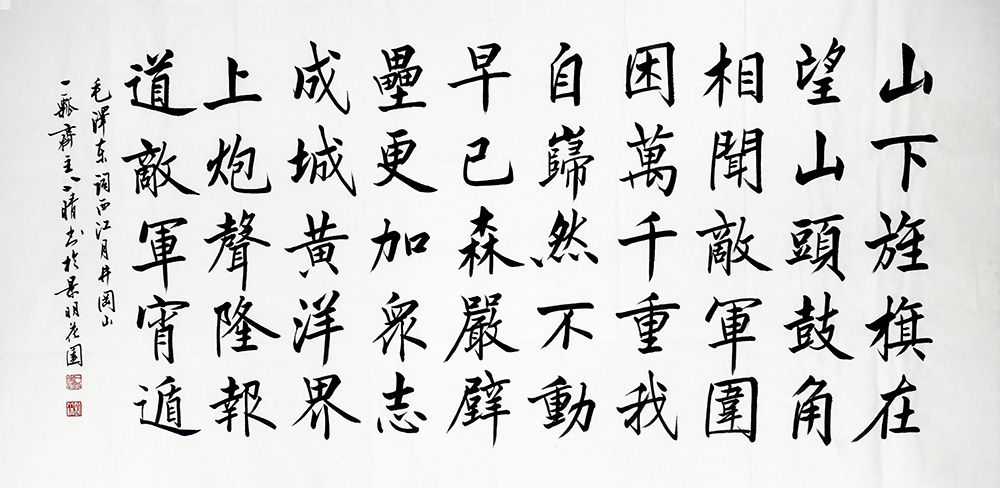 山下旌旗在
望山頭鼓角
相聞敵軍圍
困萬千重我
自巋然不動
早已森嚴壁
壘更加衆志
成城黃洋界
上炮聲隆報
道敵軍宵遁
毛澤东詞西江月井岡山
一瓢齋主人晴书於景明花園